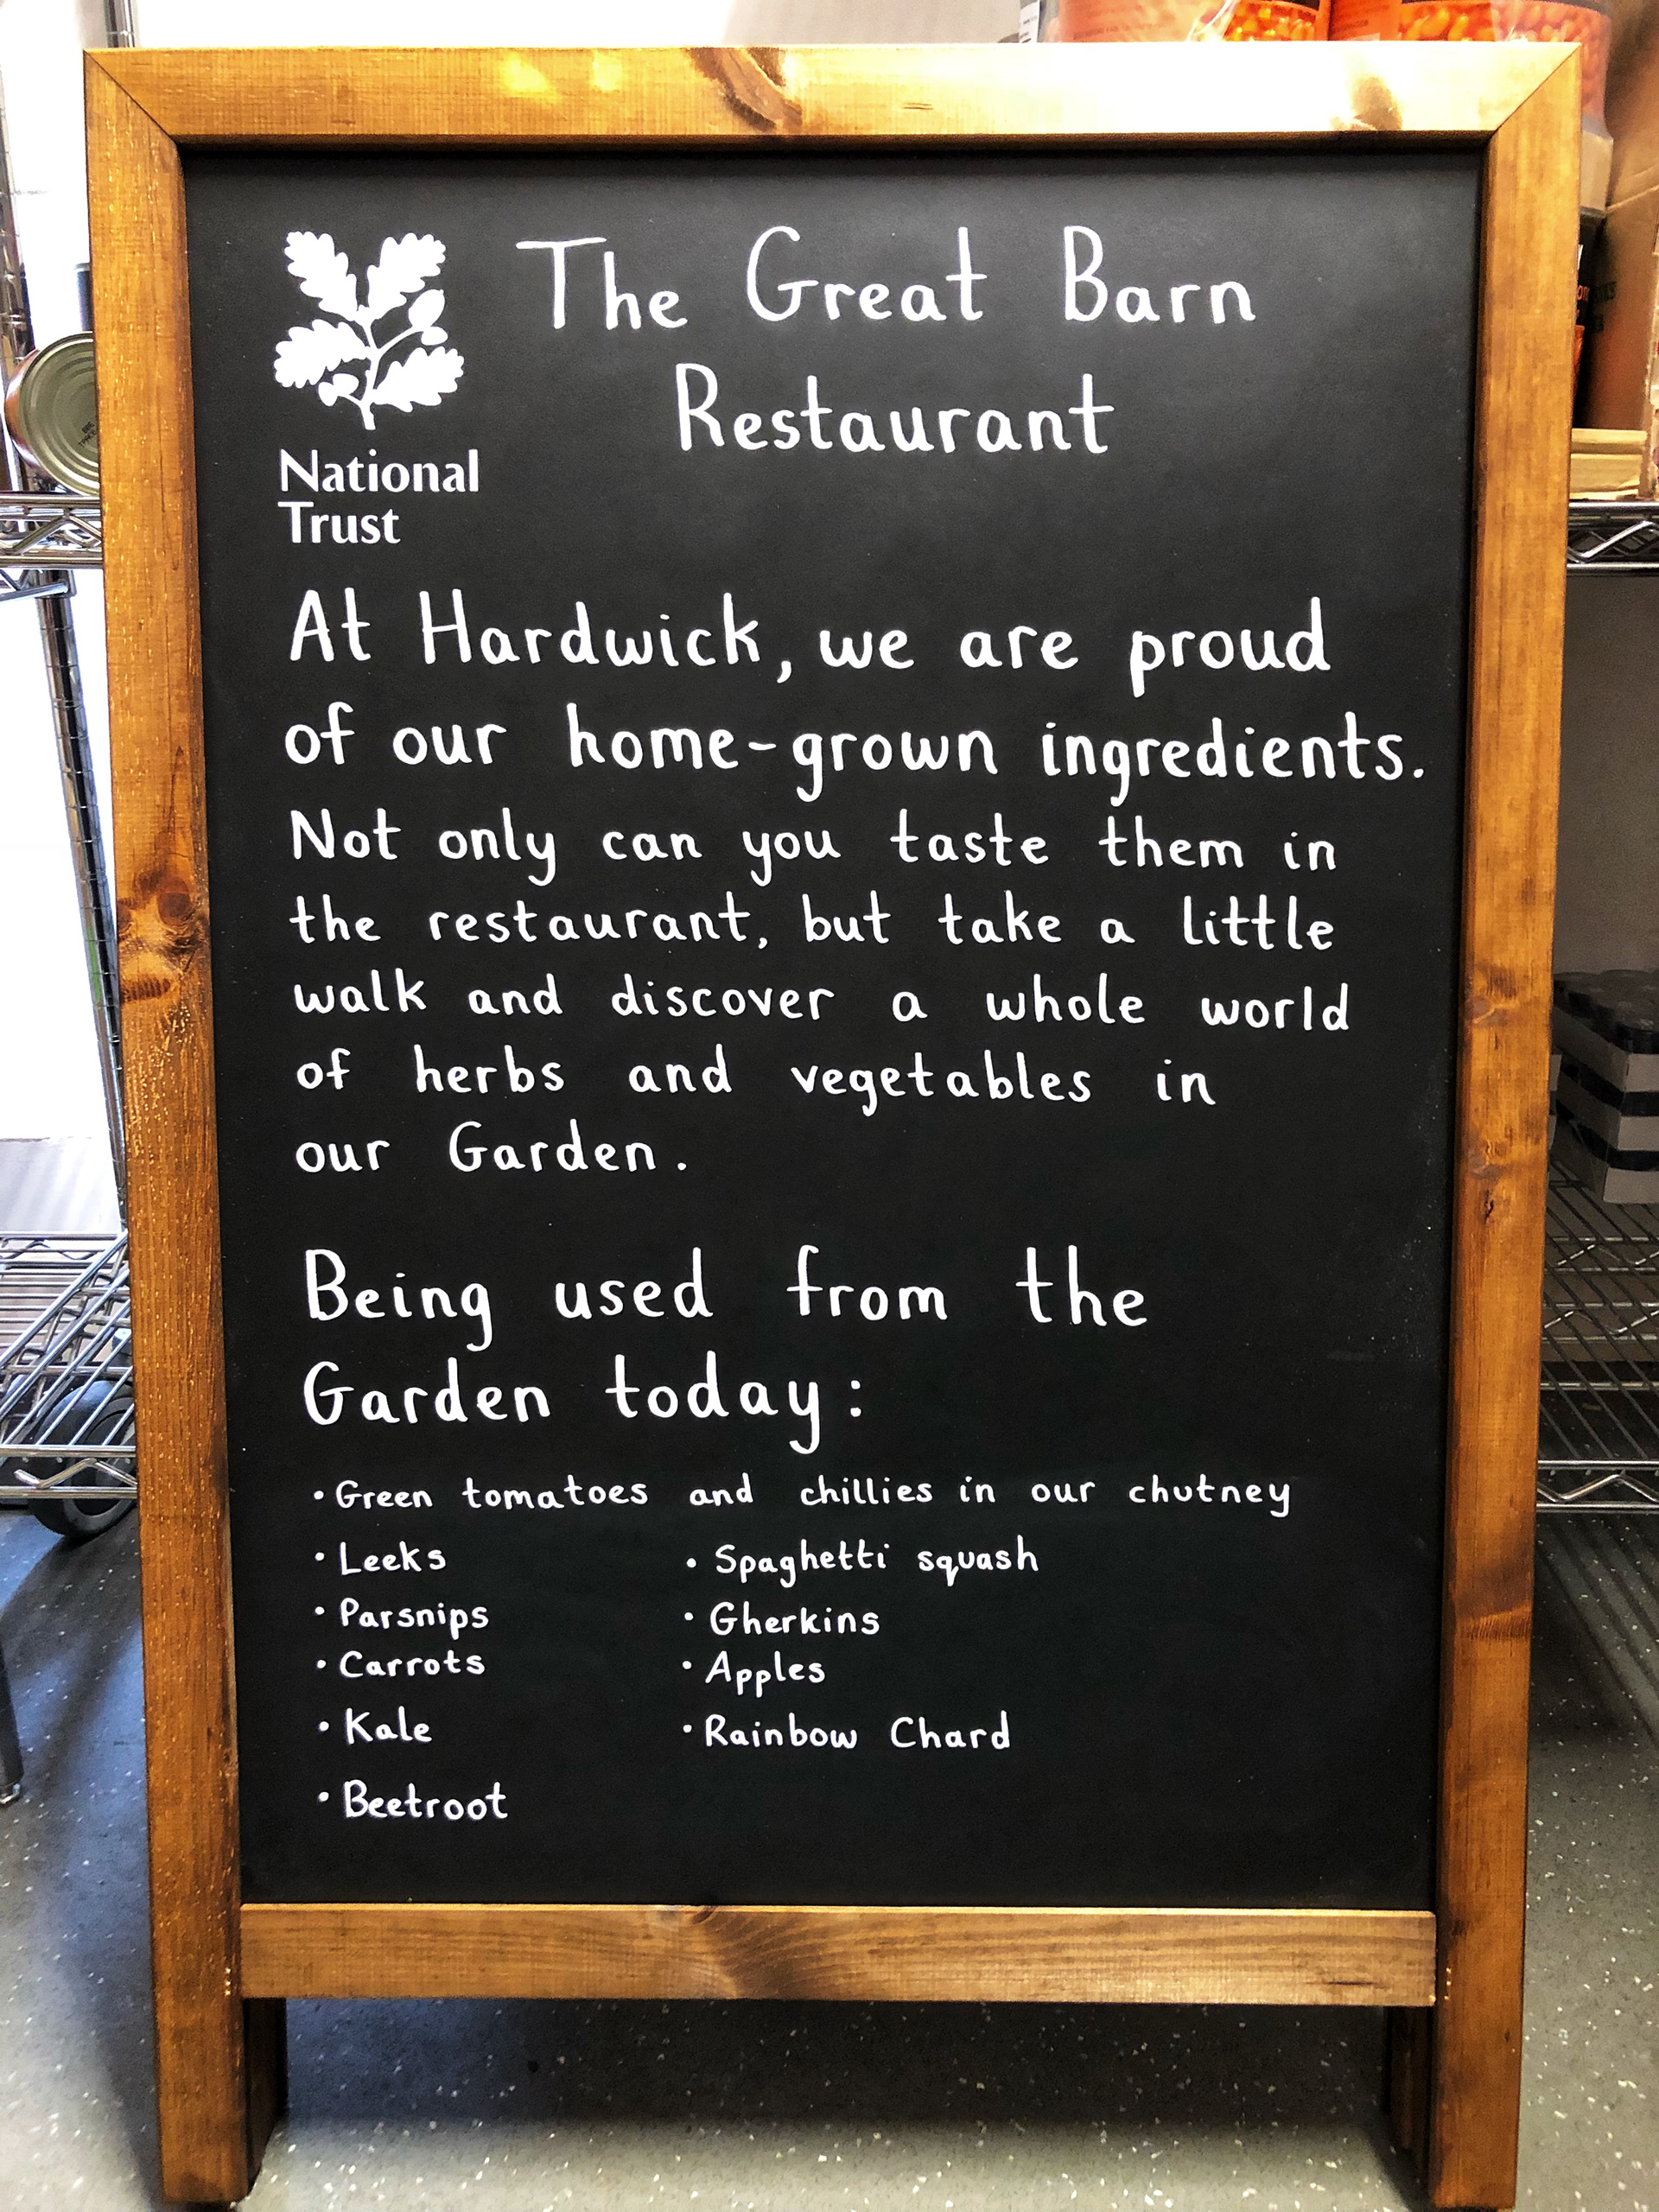 The Great Barn
Restaurant
National
Trust
At Hardwick, we are proud
of our home-grown ingredients.
Not only can you taste them in
the restaurant, but take a little
walk and discover a whole world
of herbs and vegetables in
our Garden.
Being used from the
Garden today:
• Green tomatoes and chillies in our chutney
• Leeks
• Parsnips
• Carrots
• Kale
• Beetroot
• Spaghetti squash
• Gherkins
• Apples
• Rainbow Chard